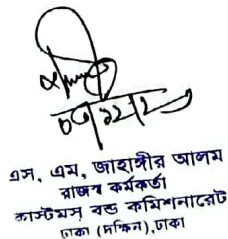 এস, এম, জাহাঙ্গীর আলম
রাজস্ব কর্মকর্তা
কাস্টমস বন্ড কমিশনারেট
ঢাকা (দক্ষিন),ঢাকা